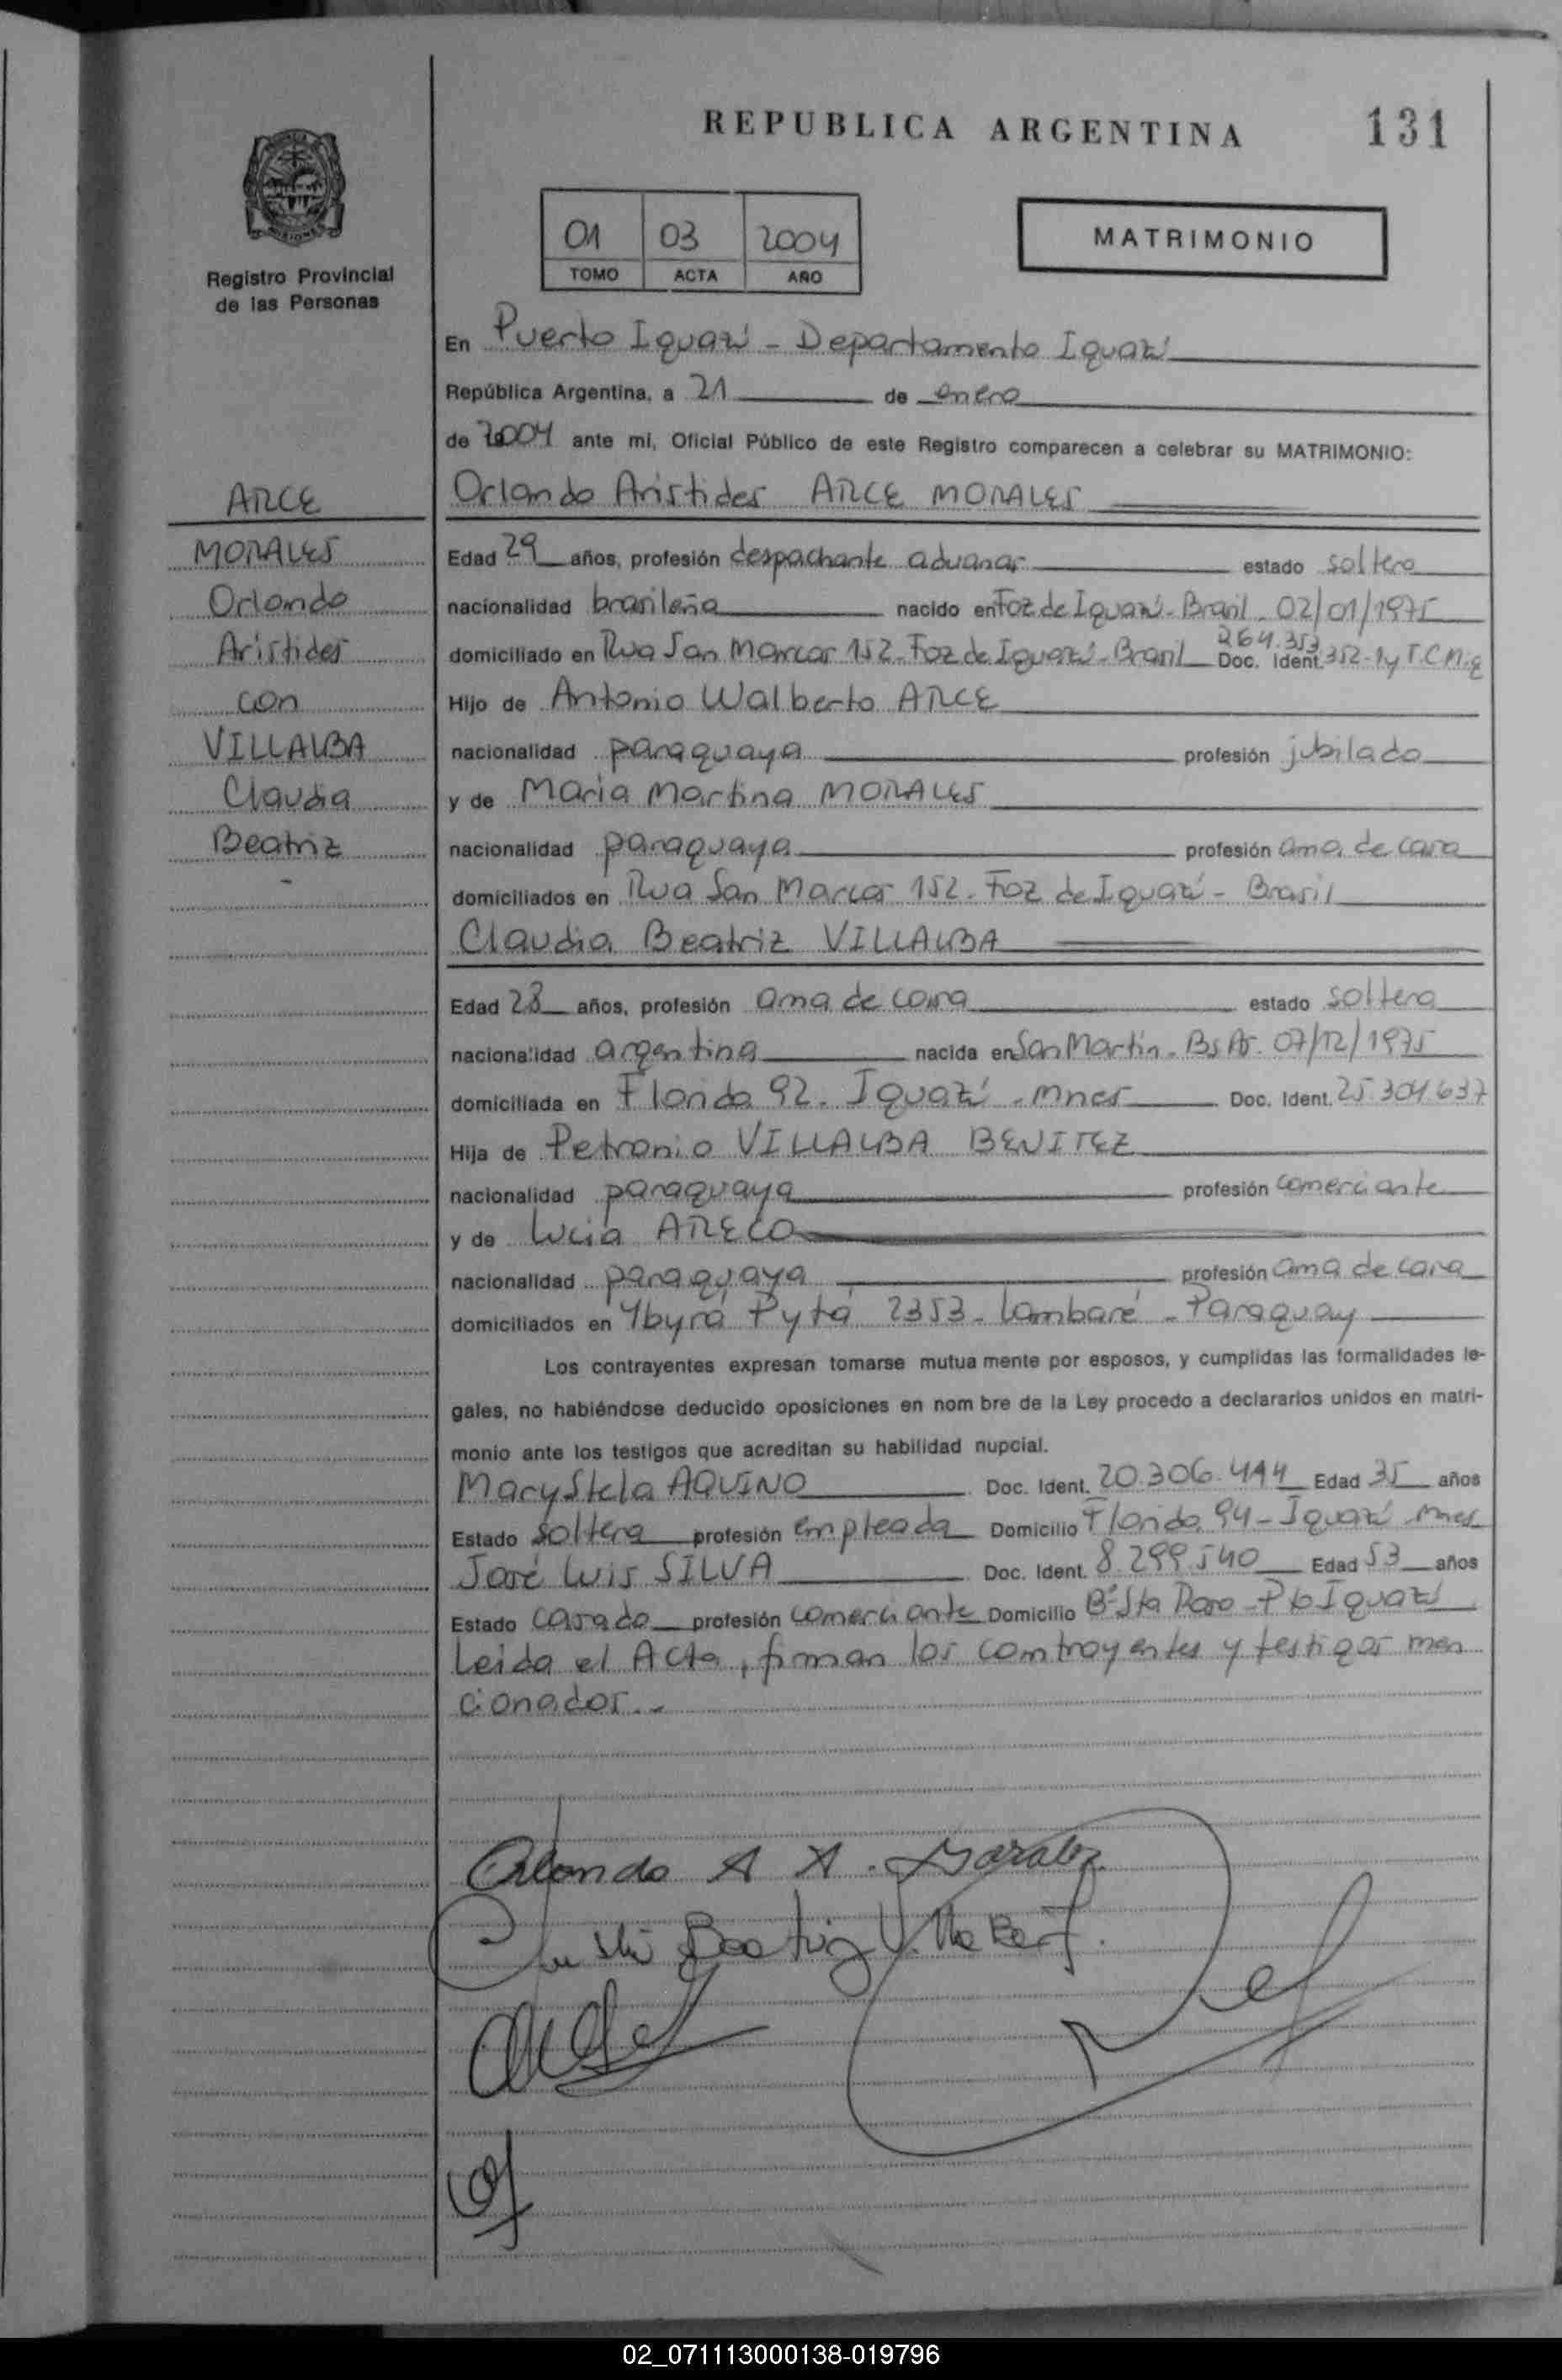 REPUBLICA ARGENTINA
131
MISIONES
Registro Provincial
de las Personas
01 03 2004
TOMO ACTA AÑO
MATRIMONIO
En Puerto Iguazú - Departamento Iguazú
República Argentina, a 21 de enero
de 2004 ante mi, Oficial Público de este Registro comparecen a celebrar su MATRIMONIO:
Orlando Aristides ARCE MORALES
ARCE
MORALES
Orlando
Aristides
con
VILLALBA
Claudia
Beatriz
-
Edad 29 años, profesión despachante aduanar estado soltero
nacionalidad brasileña nacido en Foz de Iguazú - Brasil - 02/01/1975
domiciliado en Rua San Marcos 152 - Foz de Iguazú - Brasil Doc. Ident. 264.353
Hijo de Antonio Walberto ARCE
nacionalidad paraguaya profesión jubilado
y de Maria Martina MORALES
nacionalidad paraguaya profesión ama de casa
domiciliados en Rua San Marcos 152 - Foz de Iguazú - Brasil
Claudia Beatriz VILLALBA
Edad 28 años, profesión ama de casa estado soltera
nacionalidad argentina nacida en San Martín - Bs As. 07/12/1975
domiciliada en Florida 92 - Iguazú - Mnes Doc. Ident. 25.304.637
Hija de Petronio VILLALBA BENITEZ
nacionalidad paraguaya profesión comerciante
y de Lucia ARECO
nacionalidad paraguaya profesión ama de casa
domiciliados en Ybyrá Pytá 2353 - Lambaré - Paraguay
Los contrayentes expresan tomarse mutua mente por esposos, y cumplidas las formalidades le-
gales, no habiéndose deducido oposiciones en nom bre de la Ley procedo a declararlos unidos en matri-
monio ante los testigos que acreditan su habilidad nupcial.
Mary Stela AQUINO Doc. Ident. 20.306.494 Edad 35 años
Estado soltera profesión empleada Domicilio Florida 94 - Iguazú Mnes
José Luis SILVA Doc. Ident. 8.299.540 Edad 53 años
Estado casado profesión comerciante Domicilio Bº Sta Rosa - Pto Iguazú
Leida el Acta, firman los contrayentes y testigos men
cionados.-
Orlando A A. Morales
Beatriz
02_071113000138-019796